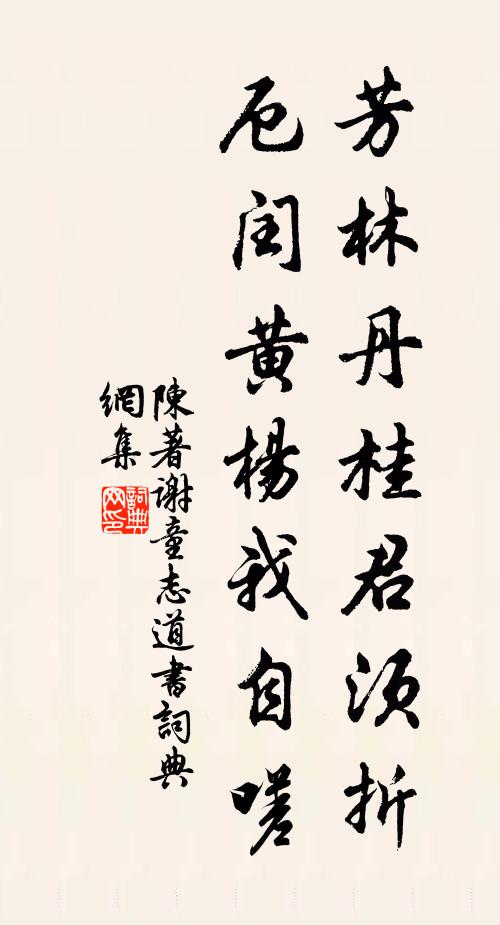 芳林丹桂君須折
厄閏黃楊我自嗟
陳著謝童志道書詞典
網集
詞典
网印